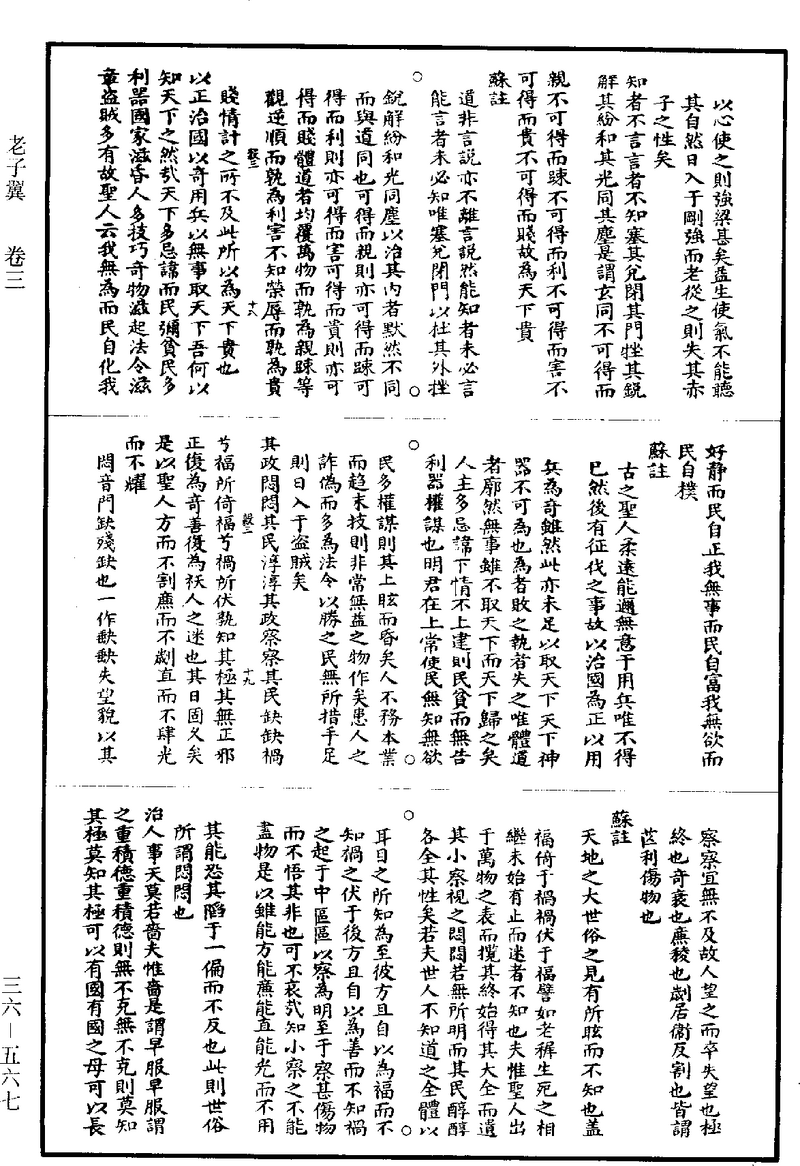 老子翼　卷三
三六—五六七
以心使之則強梁甚矣益生使氣不能聽
其自然日入于剛強而老從之則失其赤
子之性矣
知者不言言者不知塞其兌閉其門挫其銳
解其紛和其光同其塵是謂玄同不可得而
親不可得而踈不可得而利不可得而害不
可得而貴不可得而賤故為天下貴
蘇註
道非言說亦不離言說然能知者未必言
能言者未必知唯塞兌閉門以杜其外挫
銳解紛和光同塵以治其內者默然不同
而與道同也可得而親則亦可得而踈可
得而利則亦可得而害可得而貴則亦可
得而賤體道者均覆萬物而孰為親踈等
觀逆順而孰為利害不知榮辱而孰為貴
十八
賤情計之所不及此所以為天下貴也
以正治國以奇用兵以無事取天下吾何以
知天下之然㢤天下多忌諱而民彌貧民多
利器國家滋昏人多技巧奇物滋起法令滋
章盜賊多有故聖人云我無為而民自化我
好靜而民自正我無事而民自富我無欲而
民自樸
蘇註
古之聖人柔遠能邇無意于用兵唯不得
已然後有征伐之事故以治國為正以用
兵為奇雖然此亦未足以取天下天下神
器不可為也為者敗之執者失之唯體道
者廓然無事雖不取天下而天下歸之矣
人主多忌諱下情不上達則民貧而無告
利器權謀也明君在上常使民無知無欲
民多權謀則其上眩而昏矣人不務本業
而趍末技則非常無益之物作矣患人之
詐偽而多為法令以勝之民無所措手足
則日入于盜賊矣
其政悶悶其民淳淳其政察察其民缺缺禍
十九
兮福所倚福兮禍所伏孰知其極其無正邪
正復為奇善復為祅人之迷也其日固久矣
是以聖人方而不割廉而不劌直而不肆光
而不耀
悶音門缺殘缺也一作㱁㱁失望貌以其
察察宜無不及故人望之而卒失望也極
終也奇衺也廉稜也劌居衞反割也皆謂
芒利傷物也
蘇註
天地之大世俗之見有所眩而不知也盖
福倚于禍禍伏于福譬如老穉生死之相
繼未始有止而迷者不知也夫惟聖人出
于萬物之表而攬其終始得其大全而遺
其小察視之悶悶若無所明而其民醇醇
各全其性矣若夫世人不知道之全體以
耳目之所知為至彼方且自以為福而不
知禍之伏于後方且自以為善而不知禍
之起于中區區以察為明至于察甚傷物
而不悟其非也可不哀㢤知小察之不能
盡物是以雖能方能廉能直能光而不用
其能恐其䧟于一偏而不反也此則世俗
所謂悶悶也
治人事天莫若嗇夫惟嗇是謂早服早服謂
之重積德重積德則無不克無不克則莫知
其極莫知其極可以有國有國之母可以長